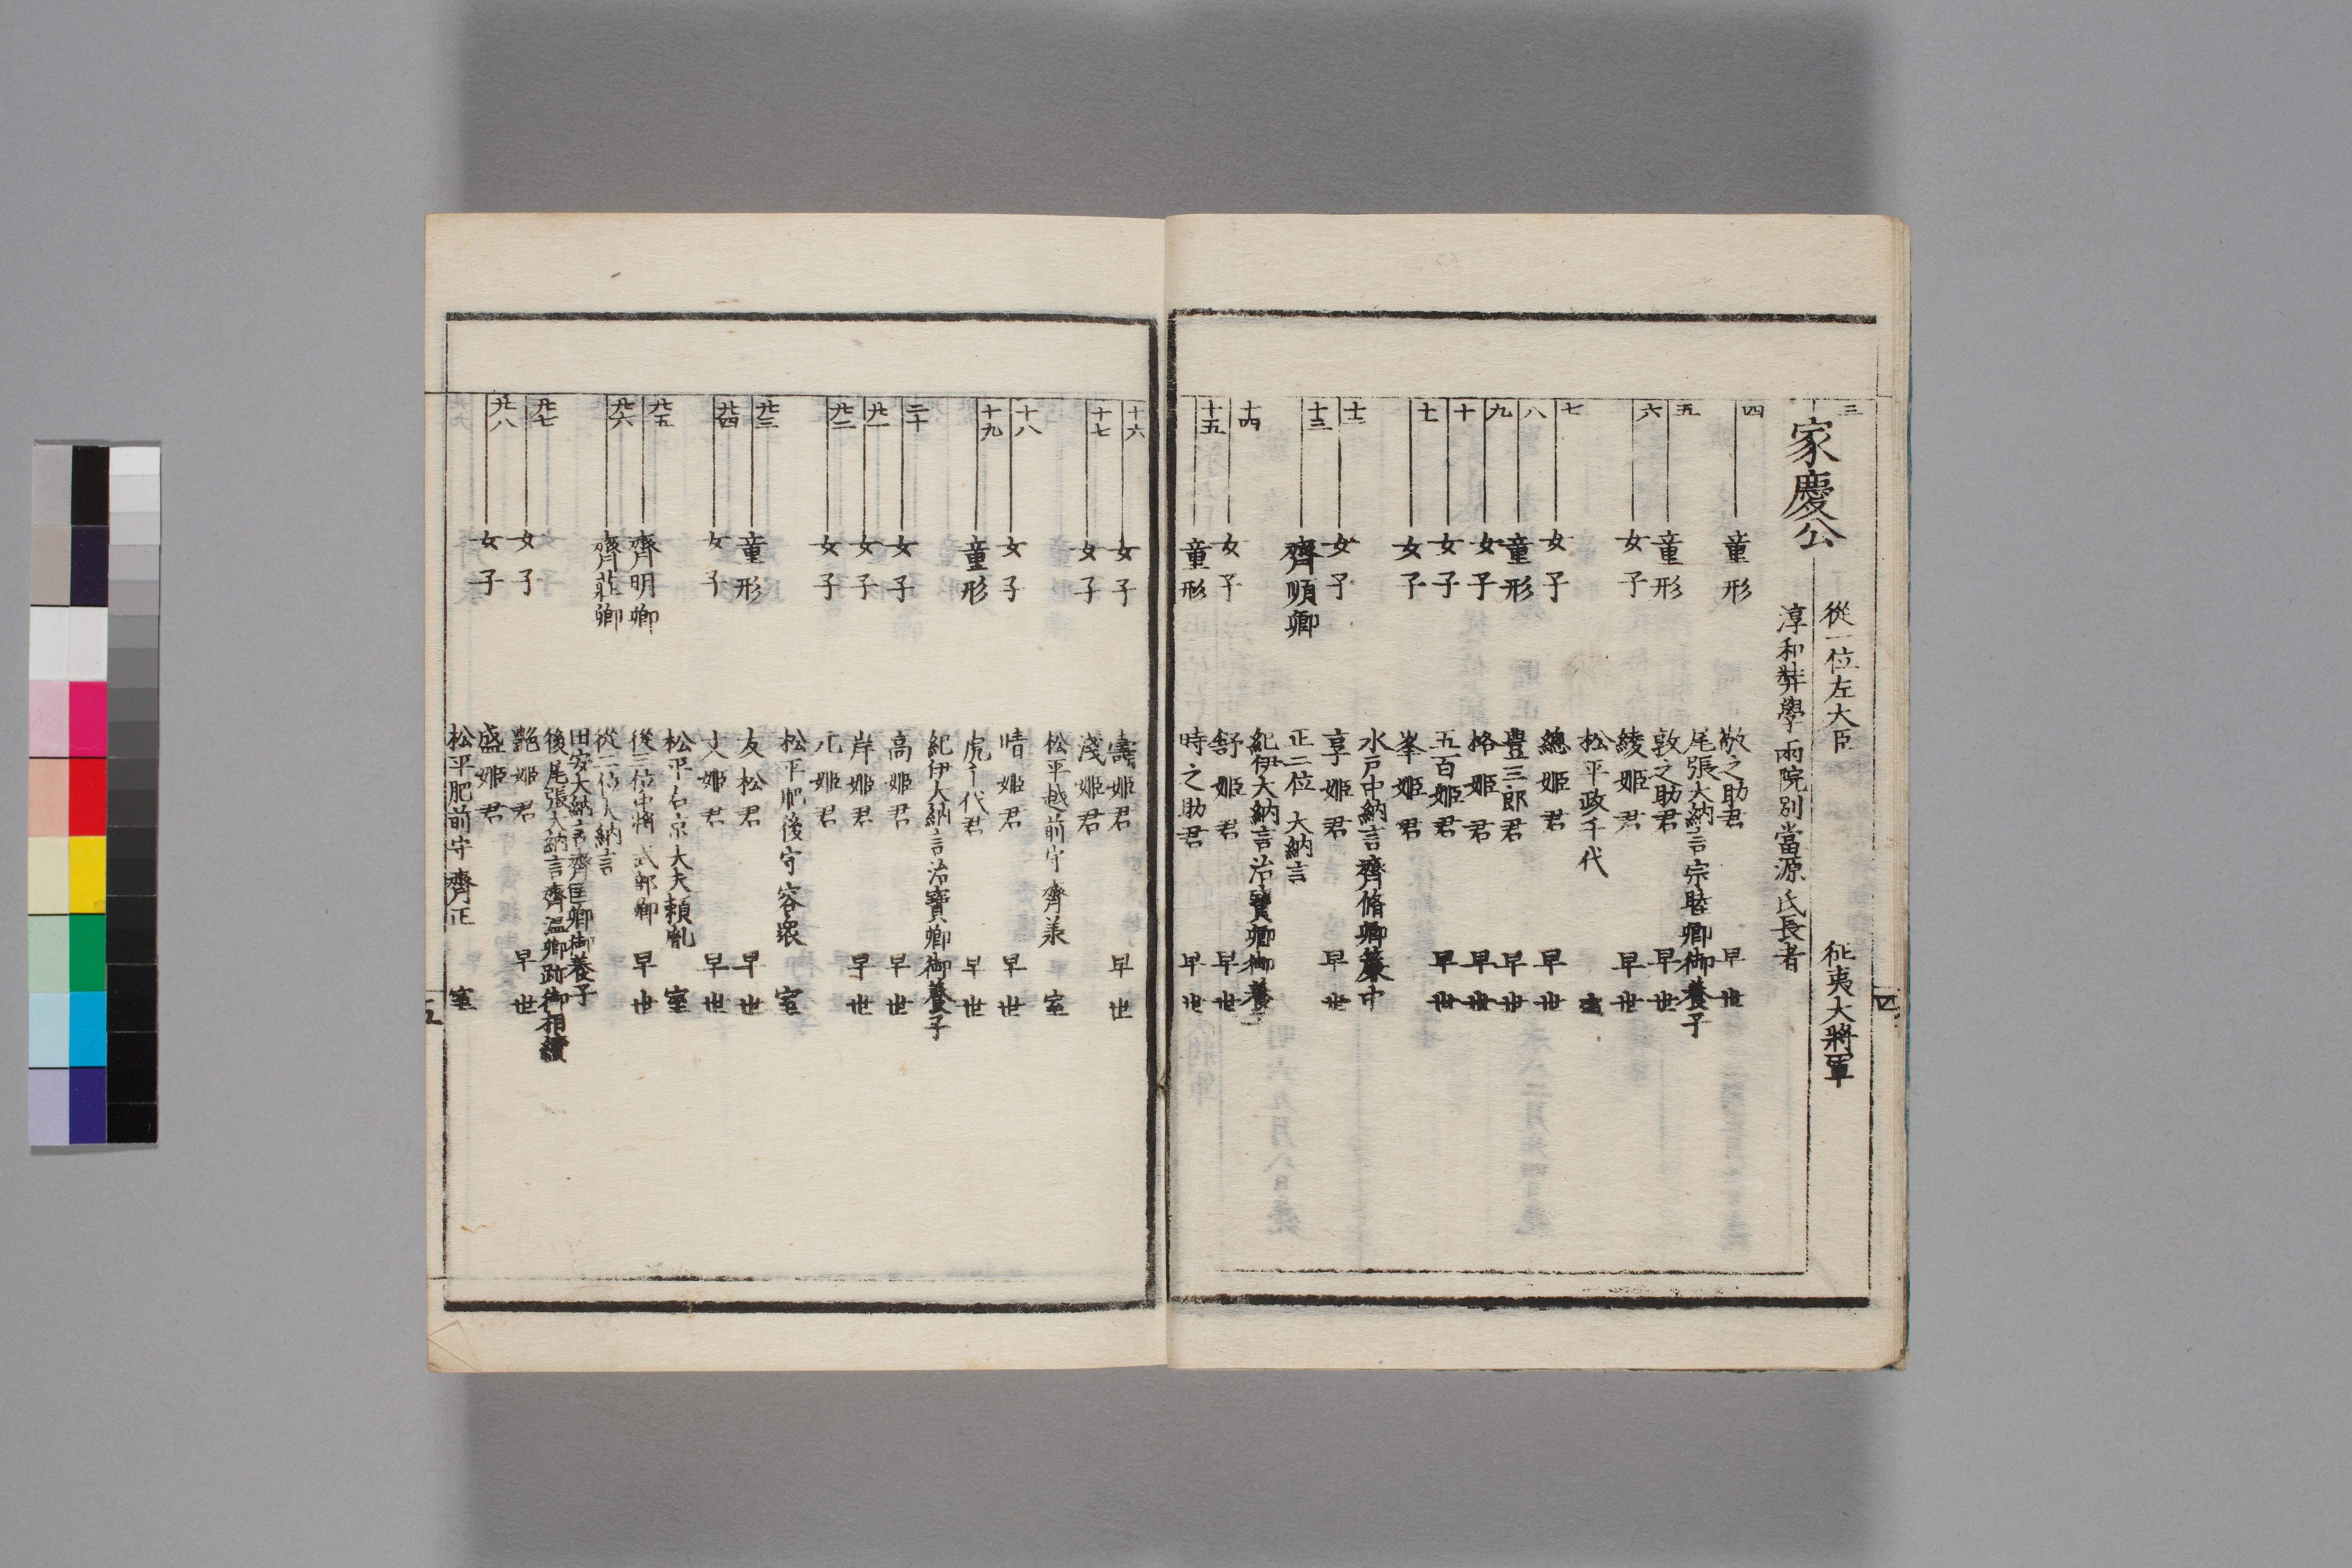 三
家慶公
從一位左大臣 征夷大將軍
淳和弉學兩院別當源氏長者
四 童形 敬之助君 早世
尾張大納言宗睦卿御養子
五 童形 敦之助君 早世
六 女子 綾姫君 早世
松平政千代
七 女子 總姫君 早世
八 童形 豊三郎君 早世
九 女子 格姫君 早世
十 女子 五百姫君 早世
十一 女子 峯姫君
水戸中納言齊脩卿簾中
十二 女子 亨姫君 早世
十三 齊順卿 正二位 大納言
紀伊大納言治寶卿御養子
十四 女子 舒姫君 早世
十五 童形 時之助君 早世
四
十六 女子 壽姫君 早世
十七 女子 淺姫君
松平越前守齊羕 室
十八 女子 晴姫君 早世
十九 童形 虎千代君 早世
紀伊大納言治寶卿御養子
二十 女子 高姫君 早世
廿一 女子 岸姫君 早世
廿二 女子 元姫君
松平肥後守容衆 室
廿三 童形 友松君 早世
廿四 女子 文姫君 早世
松平右京大夫頼胤 室
廿五 齊明卿 從三位中將 式部卿 早世
廿六 齊莊卿 從二位大納言
田安大納言齊匡卿御養子
後尾張大納言齊温卿跡御相續
廿七 女子 艶姫君 早世
廿八 女子 盛姫君
松平肥前守齊正 室
五